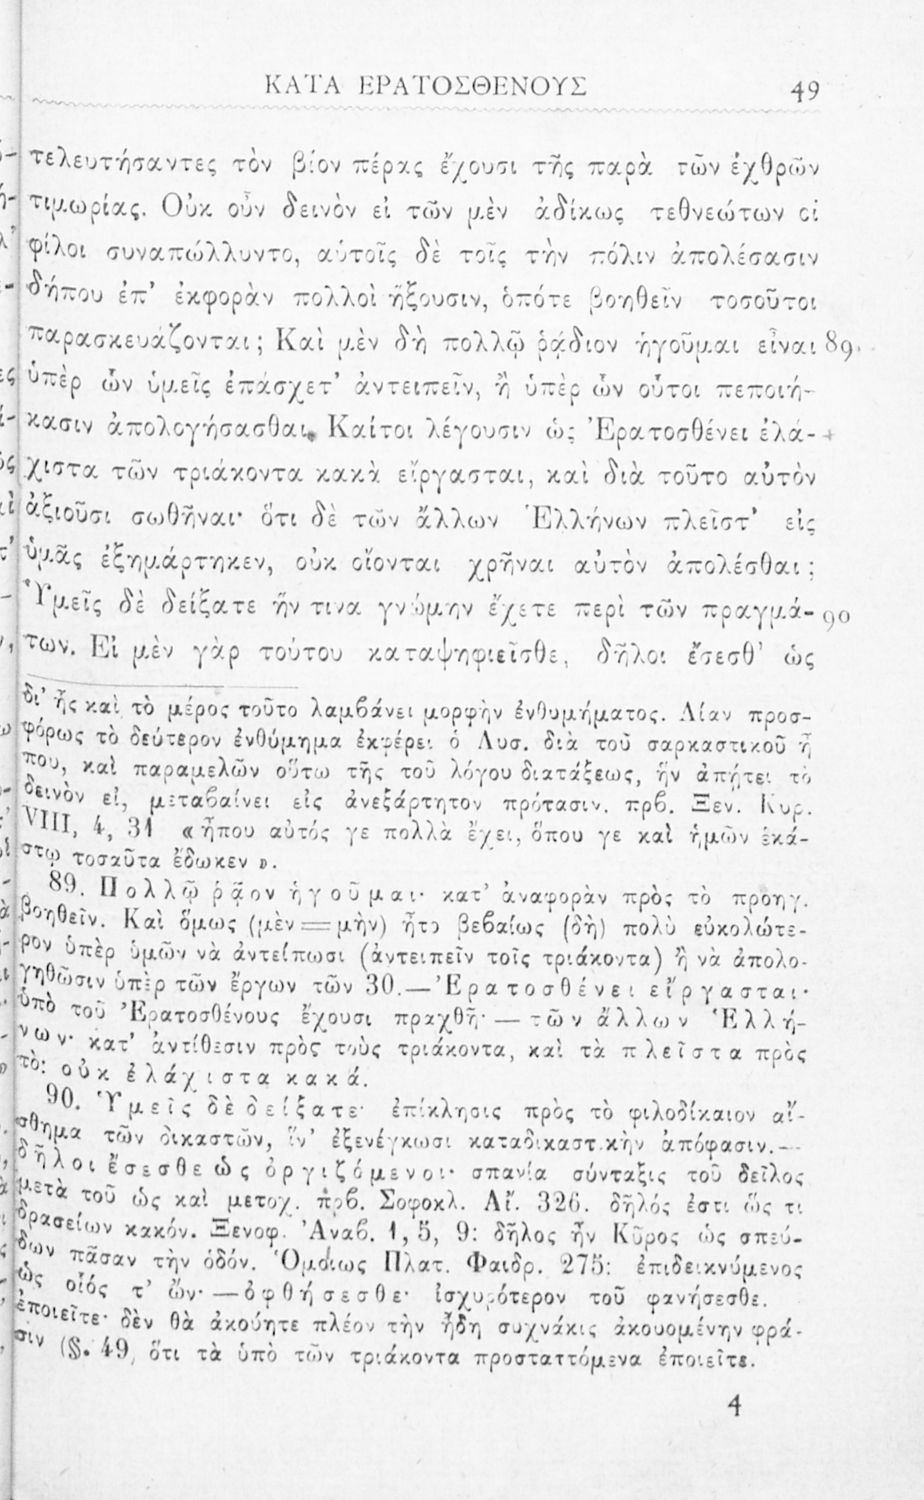 ΚΑΤΑ ΕΡΑΤΟΣΘΕΝΟΥΣ 49
τελευτήσαντες τὸν βίον πέρας ἔχουσι τῆς παρὰ τῶν ἐχθρῶν
τιμωρίας. Οὐκ οὖν δεινὸν εἰ τῶν μὲν ἀδίκως τεθνεώτων οἱ
φίλοι συναπώλλυντο, αὐτοῖς δὲ τοῖς τὴν πόλιν ἀπολέσασιν
δήπου ἐπ’ ἐκφορὰν πολλοὶ ἥξουσιν, ὁπότε βοηθεῖν τοσοῦτοι
παρασκευάζονται; Καὶ μὲν δὴ πολλῷ ῥάδιον ἡγοῦμαι εἶναι 89
ὑπὲρ ὧν ὑμεῖς ἐπάσχετ’ ἀντειπεῖν, ἢ ὑπὲρ ὧν οὗτοι πεποιή-
κασιν ἀπολογήσασθαι. Καίτοι λέγουσιν ὡς Ἐρατοσθένει ἐλά-
χιστα τῶν τριάκοντα κακὰ εἴργασται, καὶ διὰ τοῦτο αὐτὸν
ἀξιοῦσι σωθῆναι· ὅτι δὲ τῶν ἄλλων Ἑλλήνων πλεῖστ’ εἰς
ὑμᾶς ἐξημάρτηκεν, οὐκ οἴονται χρῆναι αὐτὸν ἀπολέσθαι;
Ὑμεῖς δὲ δείξατε ἥν τινα γνώμην ἔχετε περὶ τῶν πραγμά- 90
των. Εἰ μὲν γὰρ τούτου καταψηφιεῖσθε, δῆλοι ἔσεσθ’ ὡς
δι’ ἧς καὶ τὸ μέρος τοῦτο λαμβάνει μορφὴν ἐνθυμήματος. Λίαν προσ-
φόρως τὸ δεύτερον ἐνθύμημα ἐκφέρει ὁ Λυσ. διὰ τοῦ σαρκαστικοῦ ἦ
που, καὶ παραμελῶν οὕτω τῆς τοῦ λόγου διατάξεως, ἣν ἀπῄτει τὸ
δεινὸν εἰ, μεταβαίνει εἰς ἀνεξάρτητον πρότασιν. πρβ. Ξεν. Κυρ.
VIII, 4, 31 «ἦπου αὐτός γε πολλὰ ἔχει, ὅπου γε καὶ ἡμῶν ἑκά-
στῳ τοσαῦτα ἔδωκεν».
89. Πολλῷ ῥᾷον ἡγοῦμαι· κατ’ ἀναφορὰν πρὸς τὸ προηγ.
βοηθεῖν. Καὶ ὅμως (μὲν = μὴν) ἦτο βεβαίως (δὴ) πολὺ εὐκολώτε-
ρον ὑπὲρ ὑμῶν νὰ ἀντείπωσι (ἀντειπεῖν τοῖς τριάκοντα) ἢ νὰ ἀπολο-
γηθῶσιν ὑπὲρ τῶν ἔργων τῶν 30.—Ἐρατοσθένει εἴργασται·
ὑπὸ τοῦ Ἐρατοσθένους ἔχουσι πραχθῆ·—τῶν ἄλλων Ἑλλή-
νων· κατ’ ἀντίθεσιν πρὸς τοὺς τριάκοντα, καὶ τὰ πλεῖστα πρὸς
τὸ: οὐκ ἐλάχιστα κακά.
90. Ὑμεῖς δὲ δείξατε· ἐπίκλησις πρὸς τὸ φιλοδίκαιον αἴ-
σθημα τῶν δικαστῶν, ἵν’ ἐξενέγκωσι καταδικαστικὴν ἀπόφασιν.—
δῆλοι ἔσεσθε ὡς ὀργιζόμενοι· σπανία σύνταξις τοῦ δεῖλος
μετὰ τοῦ ὡς καὶ μετοχ. πρβ. Σοφοκλ. Αἴ. 326. δῆλός ἐστι ὥς τι
δρασείων κακόν. Ξενοφ. Ἀναβ. 1, 5, 9: δῆλος ἦν Κῦρος ὡς σπεύ-
δων πᾶσαν τὴν ὁδόν. Ὁμοίως Πλατ. Φαιδρ. 275: ἐπιδεικνύμενος
ὡς οἷός τ’ ὤν·—ὀφθήσεσθε· ἰσχυρότερον τοῦ φανήσεσθε.
ἐποιεῖτε· δὲν θὰ ἀκούητε πλέον τὴν ἤδη συχνάκις ἀκουομένην φρά-
σιν (§. 49, ὅτι τὰ ὑπὸ τῶν τριάκοντα προσταττόμενα ἐποιεῖτε.
4